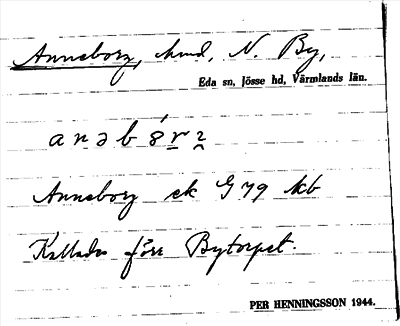 Anneborg, hmd, N. By,
Eda sn, Jösse hd, Värmlands län.
Anneborg ek G 79 kb
Kallades förr Bytorpet.
PER HENNINGSSON 1944.